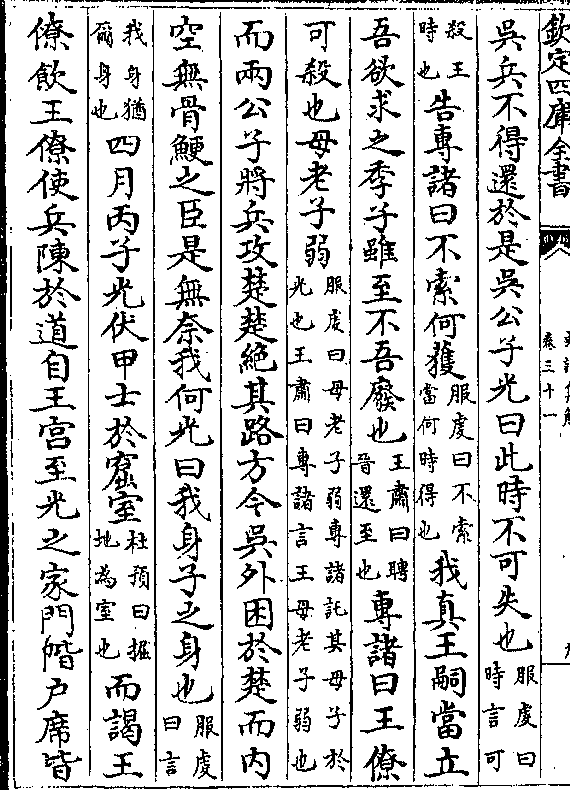 欽定四庫全書
卷三十一
吳兵不得還於是吳公子光曰此時不可失也服虔曰時言可
殺王時也告專諸曰不索何獲服虔曰不索當何時得也我真王嗣當立
吾欲求之季子雖至不吾廢也王肅曰聘晉還至也專諸曰王僚
可殺也母老子弱服虔曰母老子弱專諸託其母子於光也王肅曰專諸言王母老子弱也
而兩公子將兵攻楚楚絶其路方今吳外困於楚而內
空無骨鯁之臣是無奈我何光曰我身子之身也服虔曰言
我身猶爾身也四月丙子光伏甲士於窟室杜預曰掘地為室也而謁王
僚飲王僚使兵陳於道自王宮至光之家門階户席皆